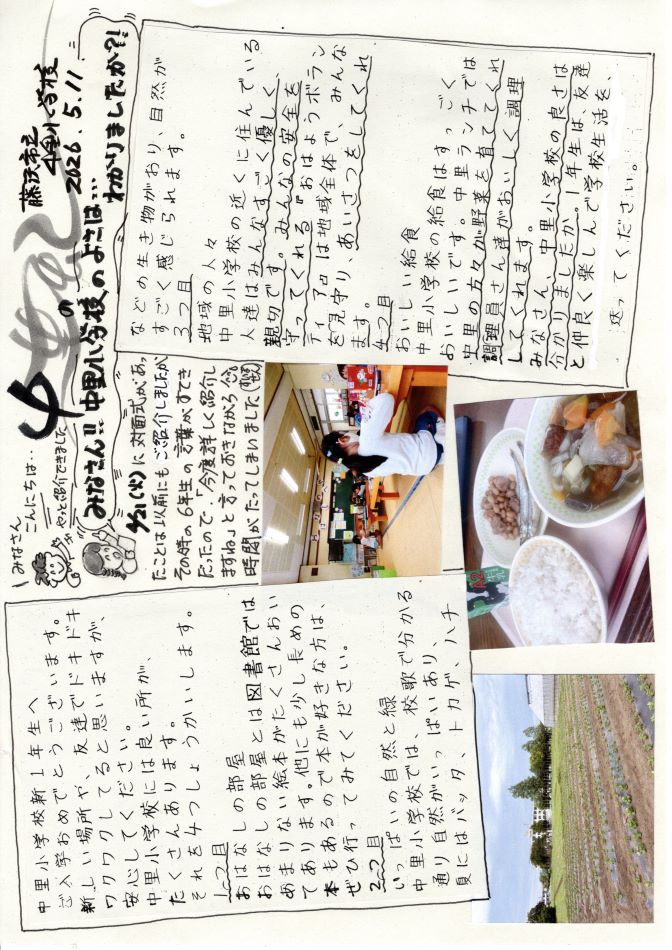 藤沢市立
中里小学校
2026.5.11
みなさん
こんにちは・・
やっと紹介できました
みなさん!!中里小学校のよさは…
わかりましたか?!
4/21(火)に対面式があっ
たことは以前にもご紹介しましたが
その時の6年生の言葉がすてき
だったので「今度詳しく紹介し
ますね」と言っておきながら
時間がたってしまいました
中里小学校新1年生へ
ご入学おめでとうございます。
新しい場所や、友達でドキドキ
ワクワクしてると思いますが、
安心してください。
中里小学校には良い所が、
たくさんあります。
それを4つしょうかいします。
1つ目
おはなしの部屋
おはなしの部屋とは図書館では
あまりない絵本がたくさんおい
てあります。他にも少し長めの
本もあるので本が好きな方は、
ぜひ行ってみてください。
2つ目
いっぱいの自然と緑
中里小学校では、校歌で分かる
通り自然がいっぱいあり、
夏にはバッタ、トカゲ、ハチ
などの生き物がおり、自然が
すごく感じられます。
3つ目
地域の人々
中里小学校の近くに住んでいる
人達はみんなすごく優しく、
親切です。みんなの安全を
守ってくれる『おはようボラン
ティア』は地域全体で、みんな
を見守り、あいさつをしてくれ
ます。
4つ目
おいしい給食
中里小学校の給食はすっごく
おいしいです。中里ランチでは
中里の方々が野菜を育ててくれ
調理員さん達がおいしく調理
してくれます。
みなさん、中里小学校の良さは
分かりましたか。1年生は、友達
と仲良く楽しんで学校生活を、
送ってください。